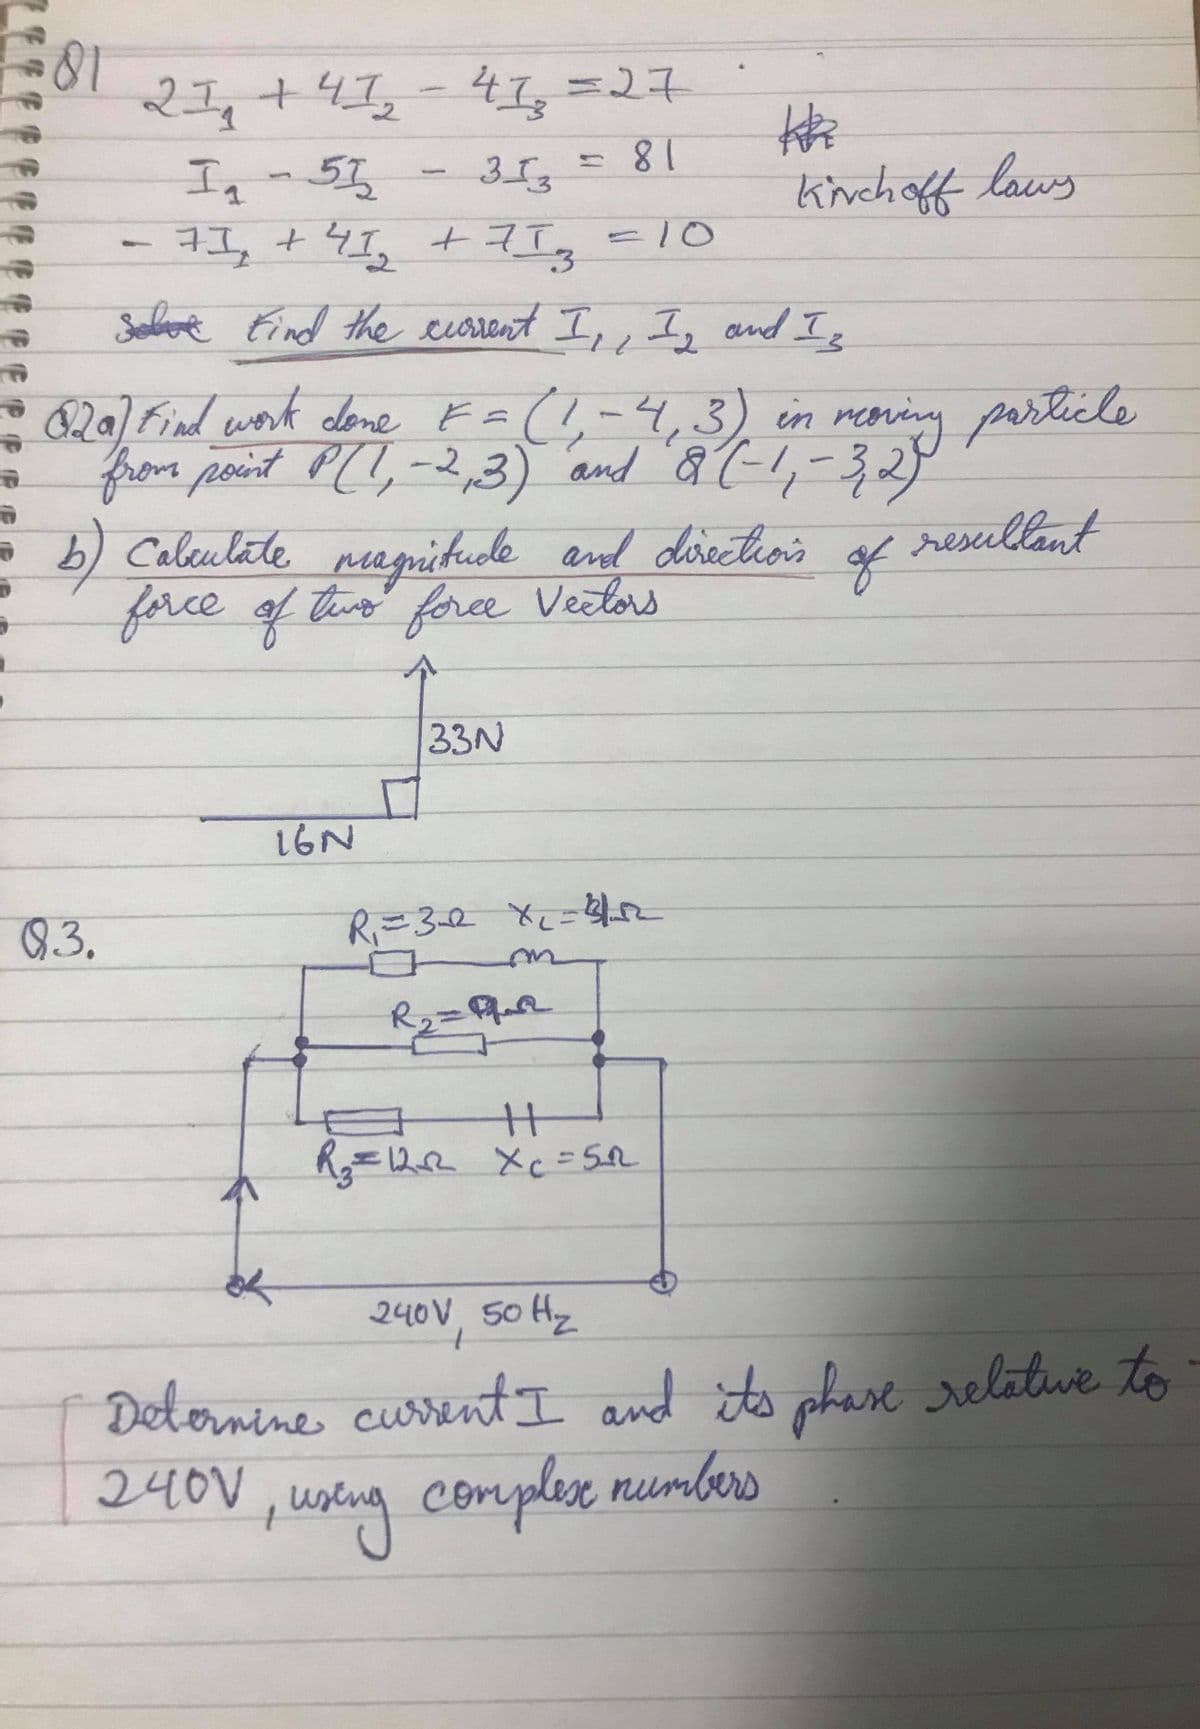 Q1
2I₁ + 4I₂ - 4I₃ = 27
I₁ - 5I₂ - 3I₃ = 81
Kirchoff laws
- 7I₁ + 4I₂ + 7I₃ = 10
Find the current I₁, I₂ and I₃
Q2a) Find work done F = (1, -4, 3) in moving particle
from point P(1, -2, 3) and Q(-1, -3, 2)
b) Calculate magnitude and direction of resultant
force of two force Vectors
33N
16N
Q3.
R₁ = 3Ω X_L = Ω
R₂ = Ω
R₃ = 12Ω X_C = 5Ω
240V, 50 Hz
Determine current I and its phase relative to
240V, using complex numbers